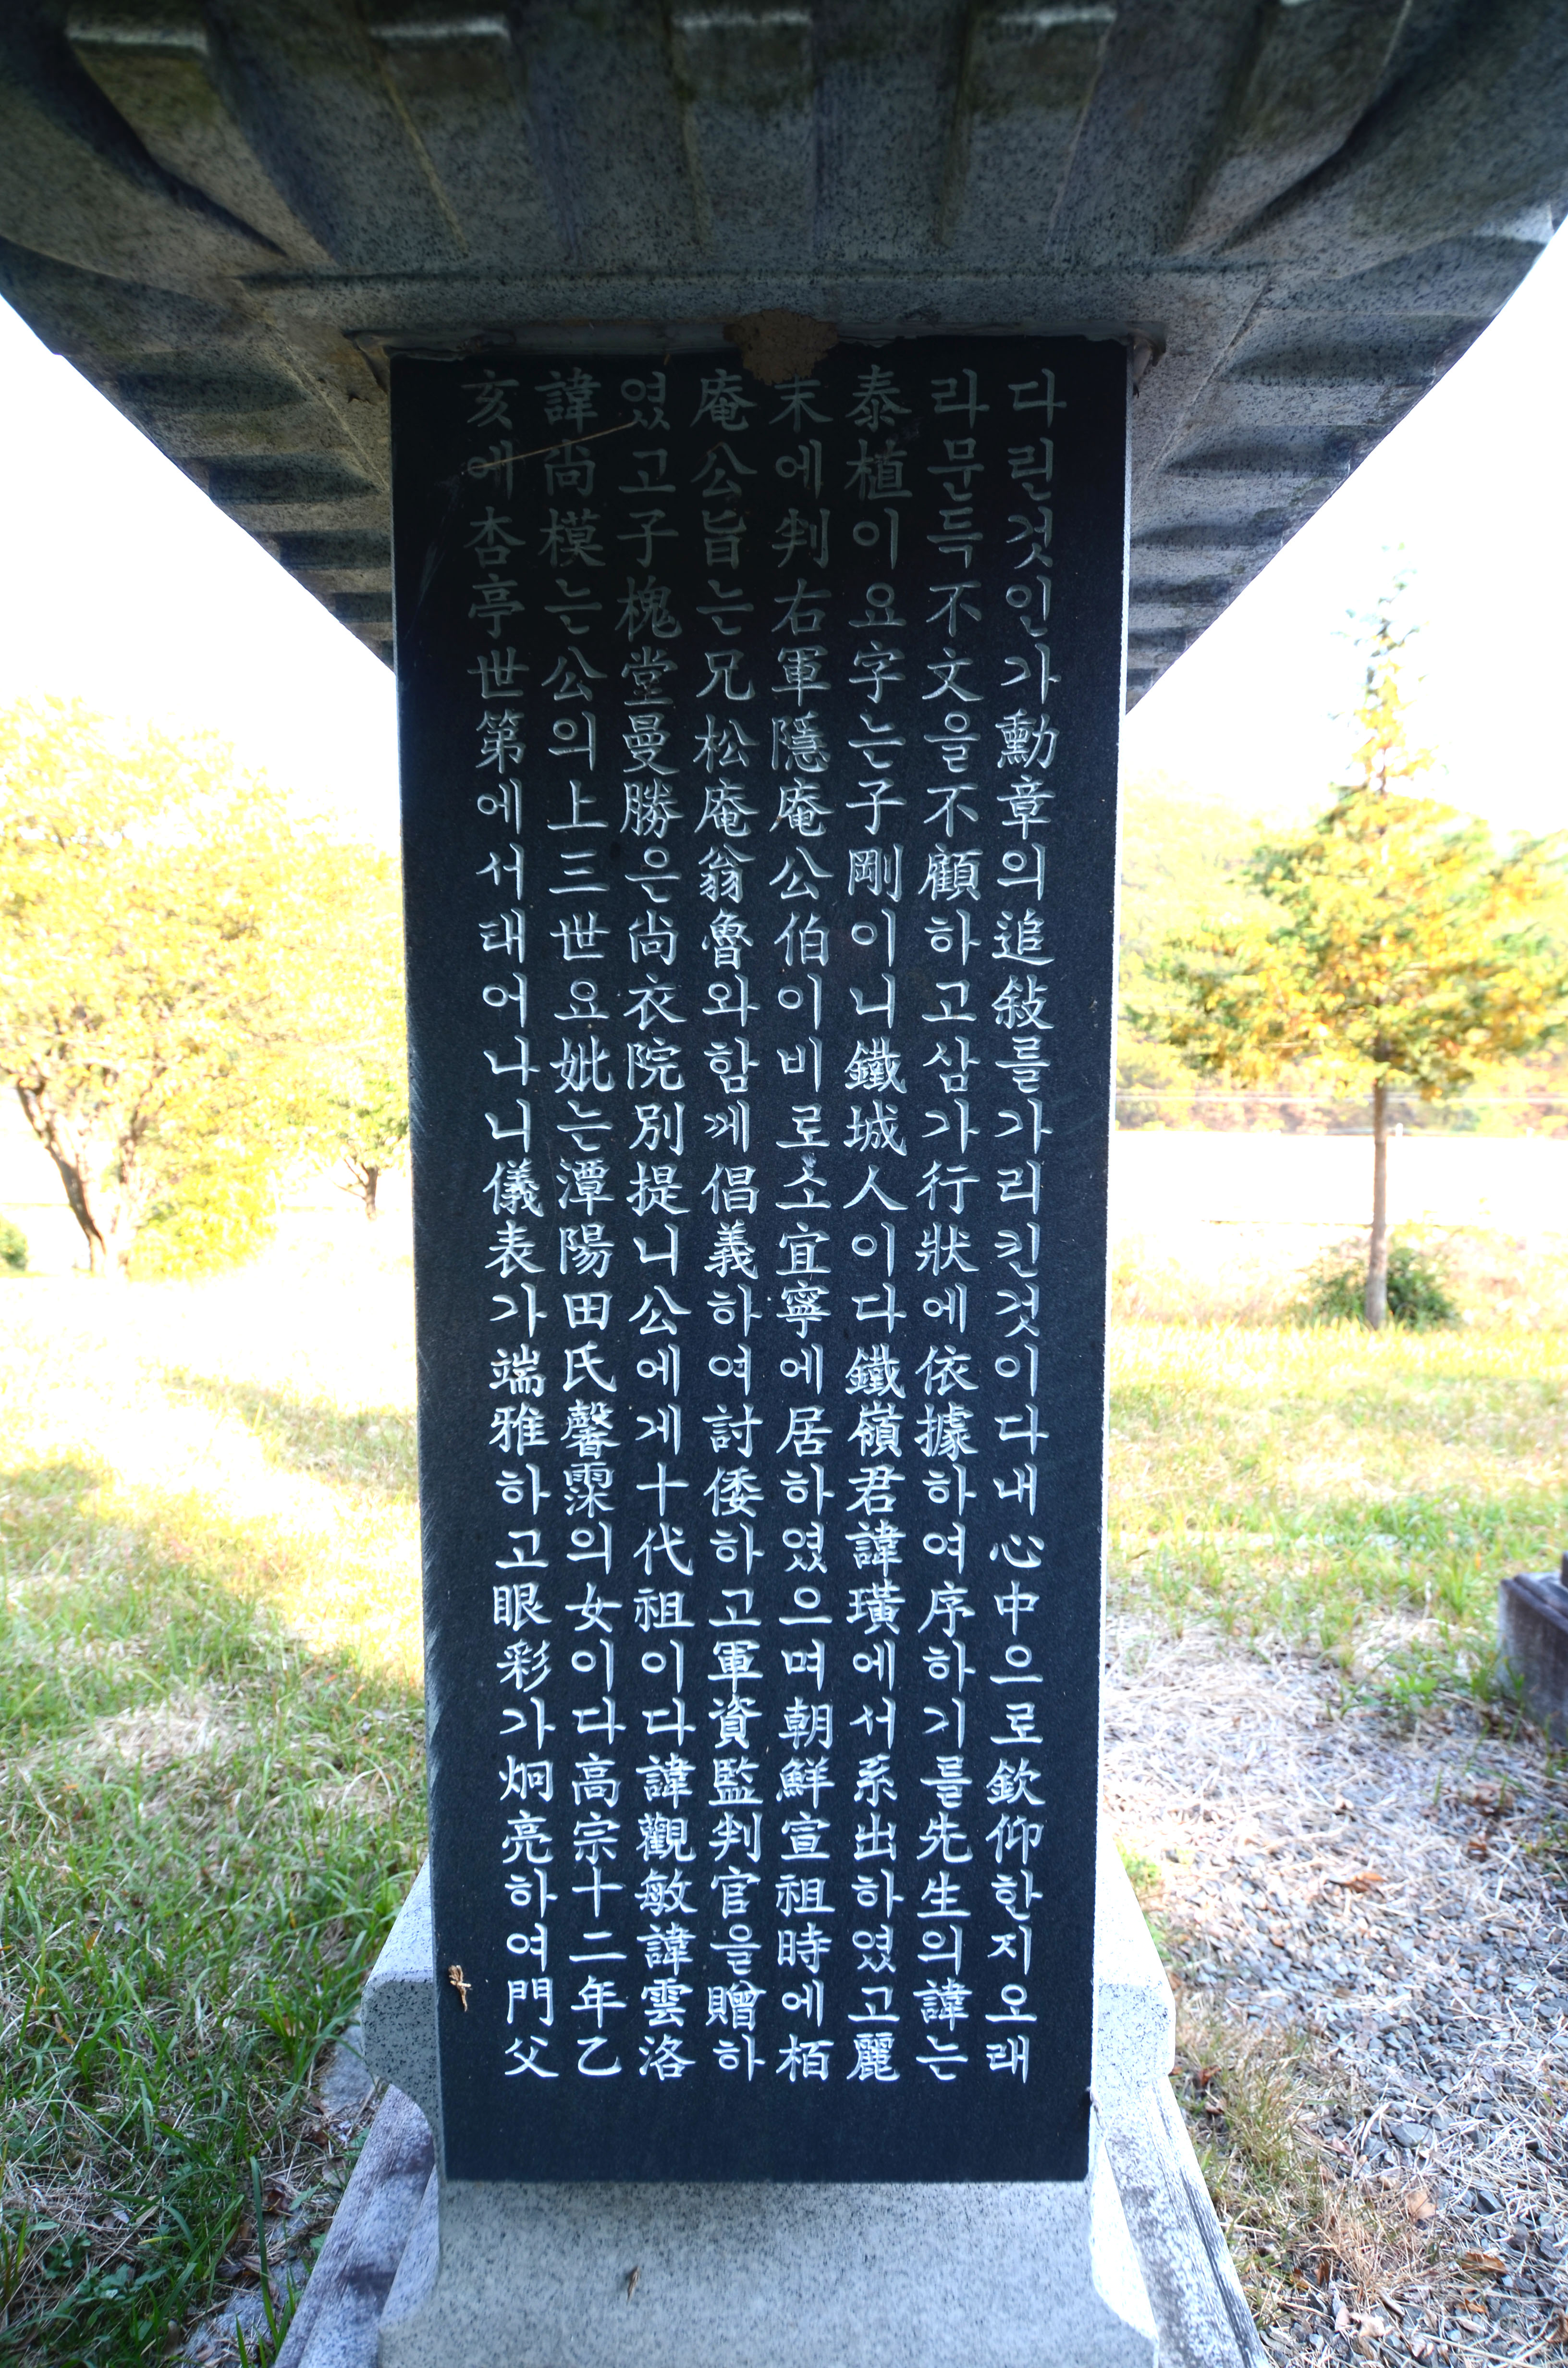 다린것인가勳章의追敍를가리킨것이다내心中으로欽仰한지오래
라문득不文을不顧하고삼가行狀에依據하여序하기를先生의諱는
泰植이요字는子剛이니鐵城人이다鐵嶺君諱璜에서系出하였고麗
末에判右軍隱庵公伯이비로소宜寧에居하였으며朝鮮宣祖時에栢
庵公旨는兄松庵翁魯와함께倡義하여討倭하고軍資監判官을贈하
였고子槐堂曼勝은尙衣院別提니公에게十代祖이다諱觀敏諱雲洛
諱尙模는公의上三世요妣는潭陽田氏馨霂의女이다高宗十二年乙
亥에杏亭世第에서태어나니儀表가端雅하고眼彩가炯亮하여門父